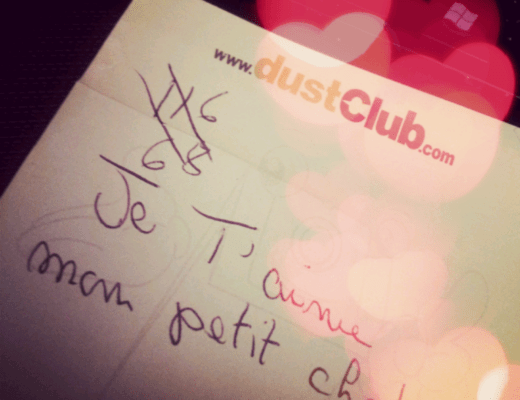 www.dustClub.com
Je T'aime
mon petit